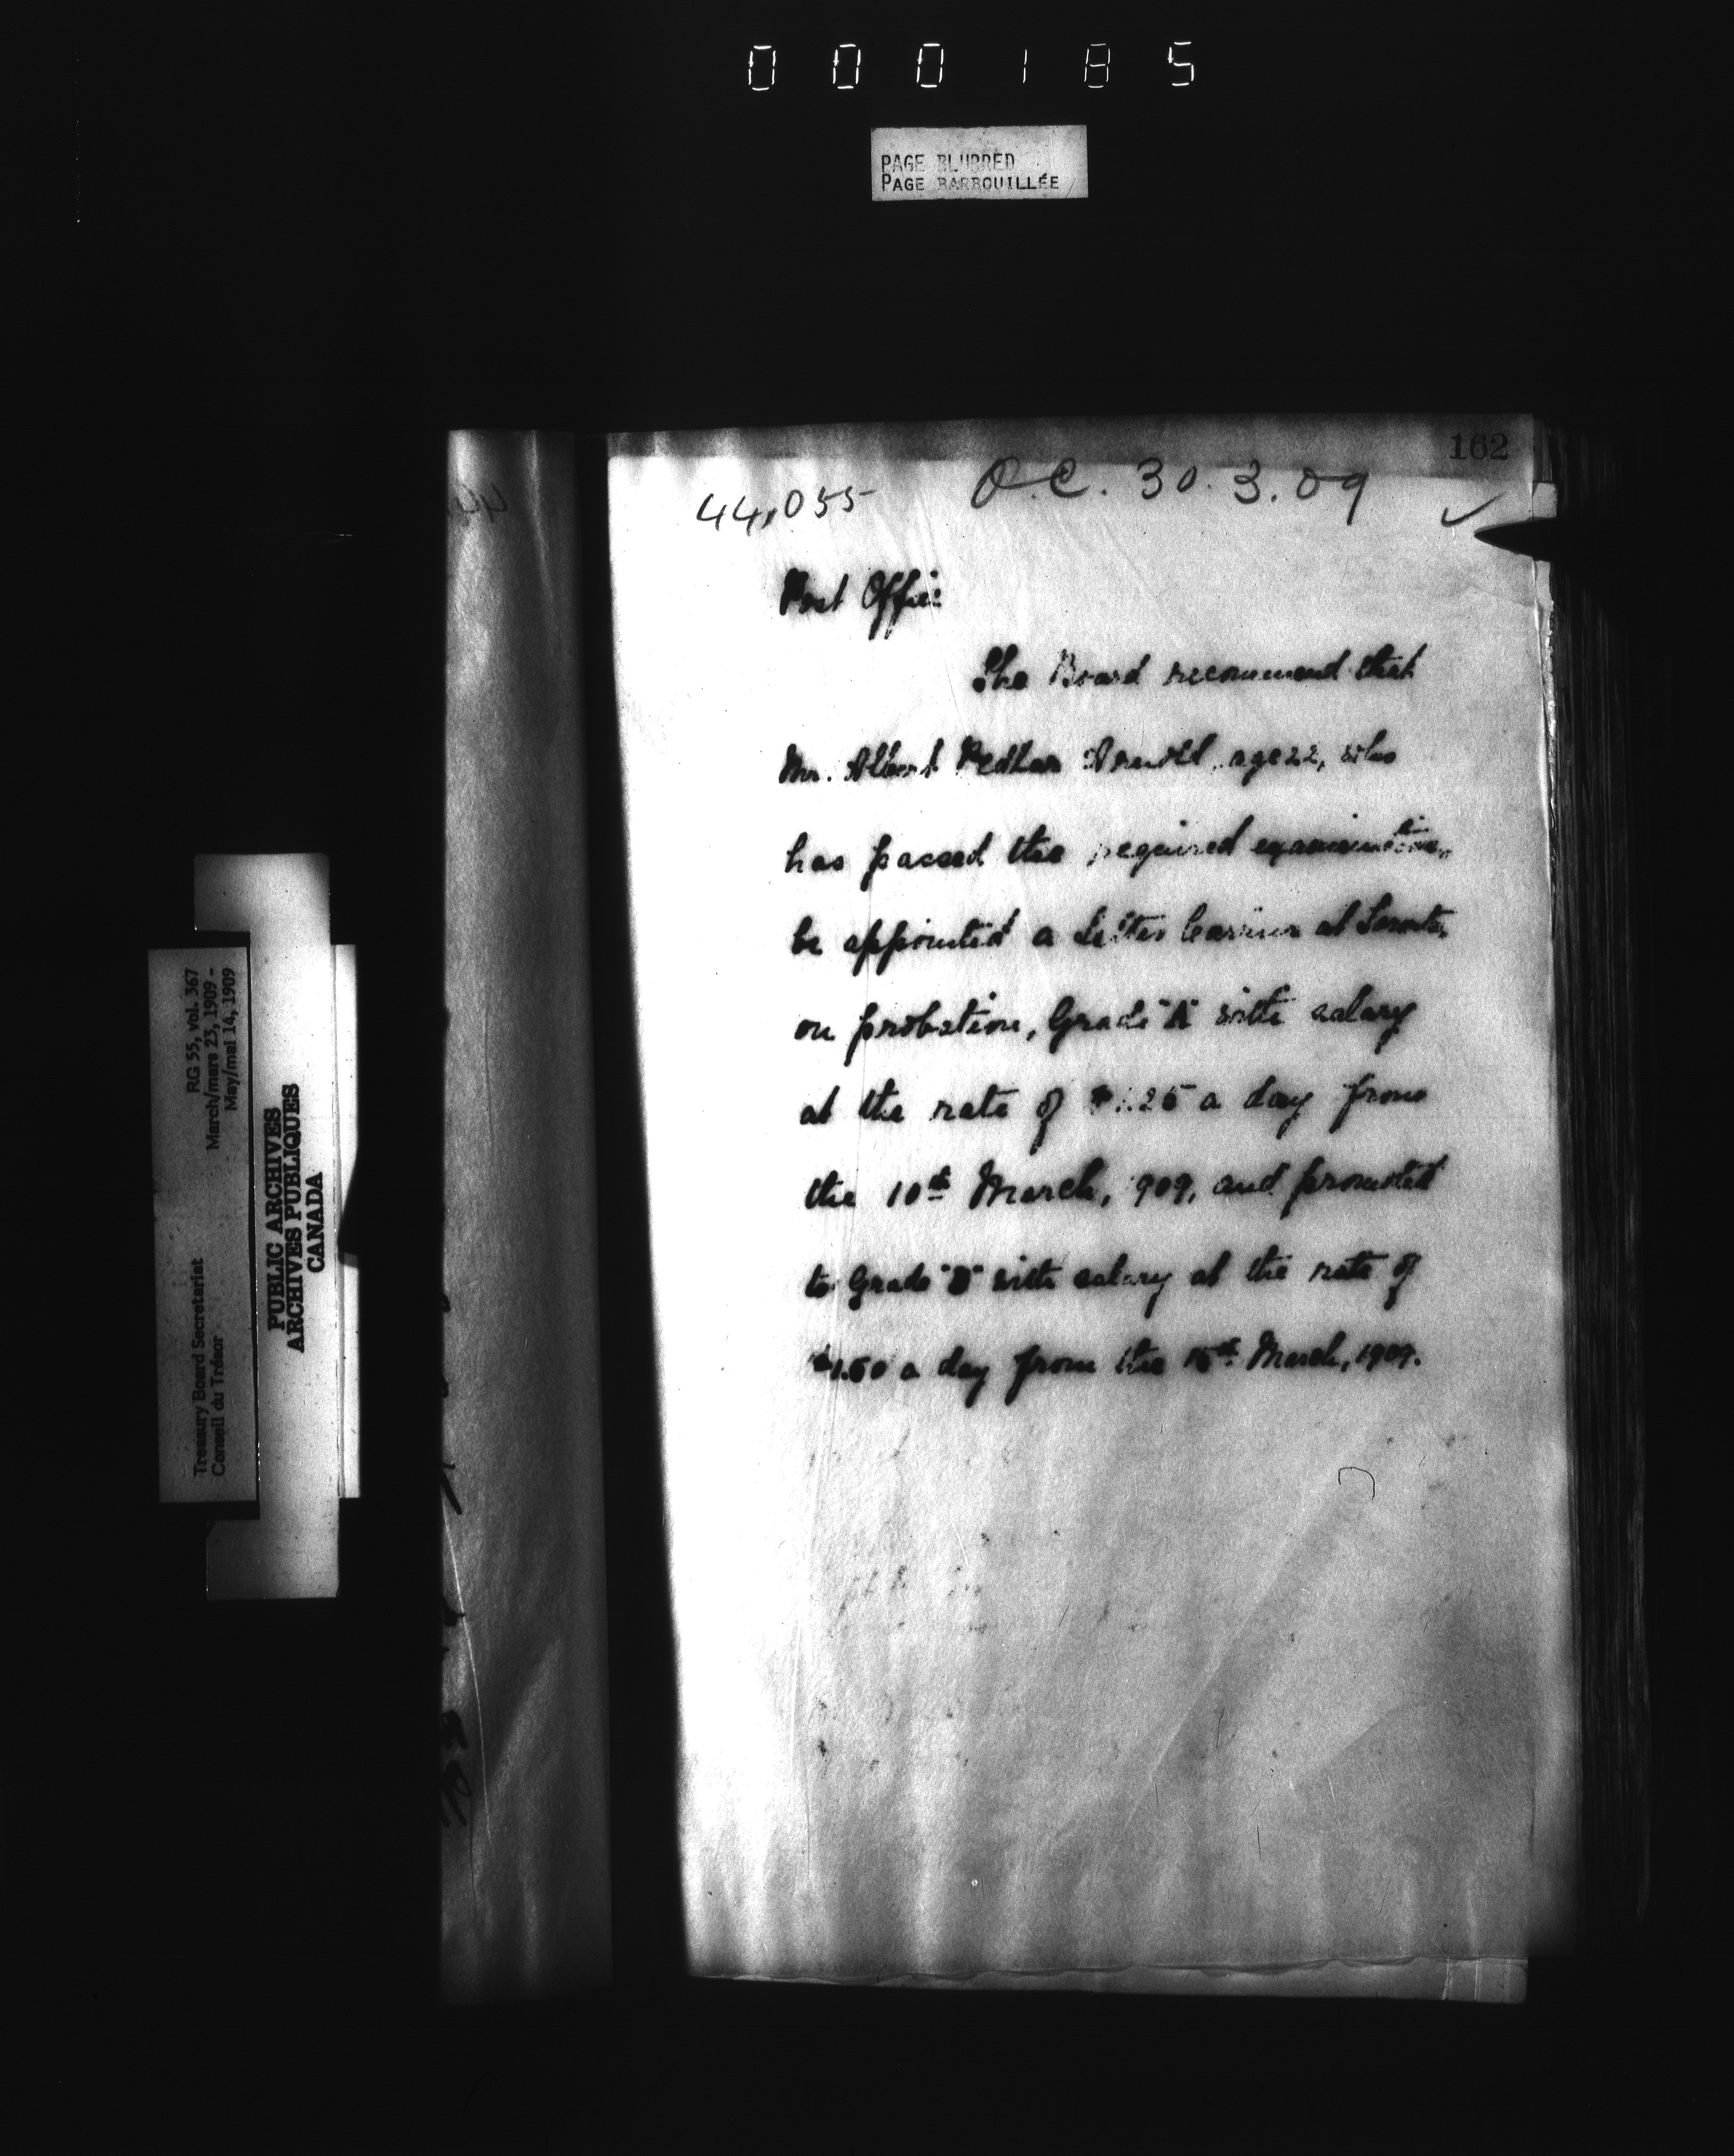 000185
PAGE BLURRED
PAGE BARBOUILLÉE
162
44,055 O.C. 30.3.09
Post Office
The Board recommend that
Mr. Albert Arnold, age 22, who
has passed the required examination,
be appointed a Letter Carrier at Toronto,
on probation, Grade "A" with salary
at the rate of $1.25 a day from
the 10th March, 909, and promoted
to Grade "B" with salary at the rate of
$1.50 a day from the 15th March, 1909.
RG 55, vol. 367
March/mars 23, 1909 -
May/mai 14, 1909
Treasury Board Secretariat
Conseil du Trésor
PUBLIC ARCHIVES
ARCHIVES PUBLIQUES
CANADA